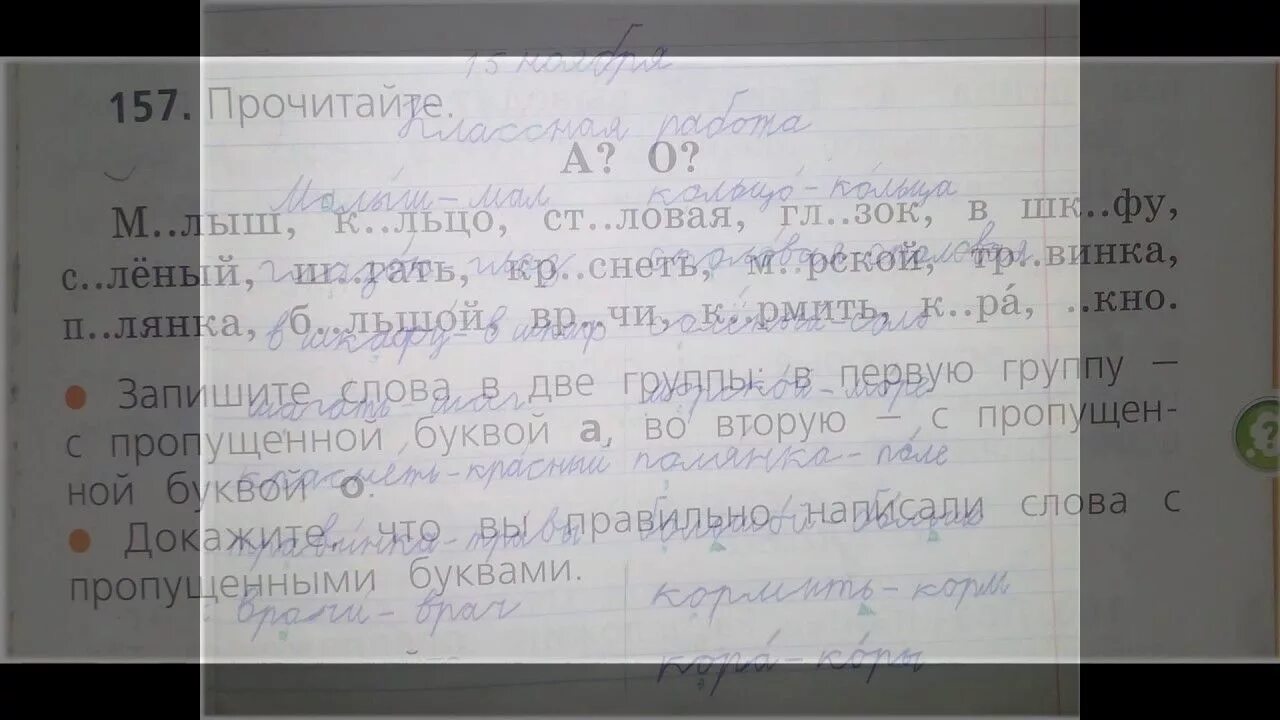 157. Прочитайте.
А? О?
М..лыш, к..льцо, ст..ловая, гл..зок, в шк..фу,
с..лёный, ш..гать, кр..снеть, м..рской, тр..винка,
п..лянка, б..льшо́й, вр..чи, к..рмить, к..ра́, ..кно.
Запишите слова в две группы: в первую группу –
с пропущенной буквой а, во вторую – с пропущен-
ной буквой о.
Докажите, что вы правильно написали слова с
пропущенными буквами.
15 ноября
Классная работа
Малы́ш - мал кольцо́ - ко́льца
в шкафу - в шкаф - соль
шагать - шаг морской - море
краснеть - кра́сный полянка - по́ле
травинка - травы
врачи - врач кормить - корм
кора́ - ко́ры